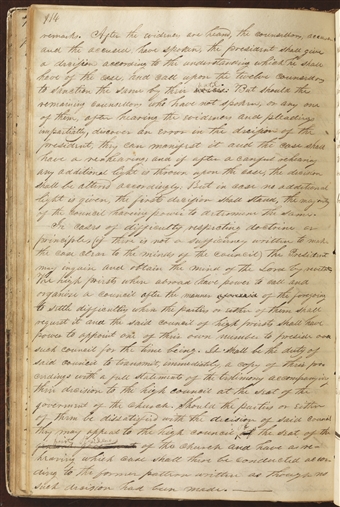 914
remarks. After the evidences are heard, the counsellors, accuser
and the accused have spoken, the president shall give
a decision according to the understanding which he shall
have of the case, and call upon the twelve counsellors
to sanction the same by their voices. But should the
remaining counsellors who have not spoken, or any one
of them, after hearing the evidences and pleadings
impartially, discover an error in the decision of the
president, they can manifest it and the case shall
have a rehearing; and if after a careful rehearing
any additional light is thrown upon the case, the decision
shall be altered accordingly. But in case no additional
light is given, the first decision shall stand, the majority
of the council having power to determine the same.
In cases of difficulty respecting doctrine or
principle, (if there is not a sufficiency written to make
the case clear to the minds of the council) the President
may inquire and obtain the mind of the Lord by revelation
The high priests when abroad have power to call and
organize a council after the manner of the foregoing
to settle difficulties when the parties or either of them shall
request it and the said council of high priests shall have
power to appoint one of their own number to preside over
such council for the time being. It shall be the duty of
said council to transmit, immediately, a copy of their pro-
ceedings with a full statement of the testimony accompanying
their decision to the high council at the seat of the
government of the church. Should the parties or either
of them be dissatisfied with the decision of said council
they may appeal to the high council of the seat of the
of the church and have a re-
hearing which case shall there be conducted accor-
ding to the former pattern written as though no
such decision had been made.